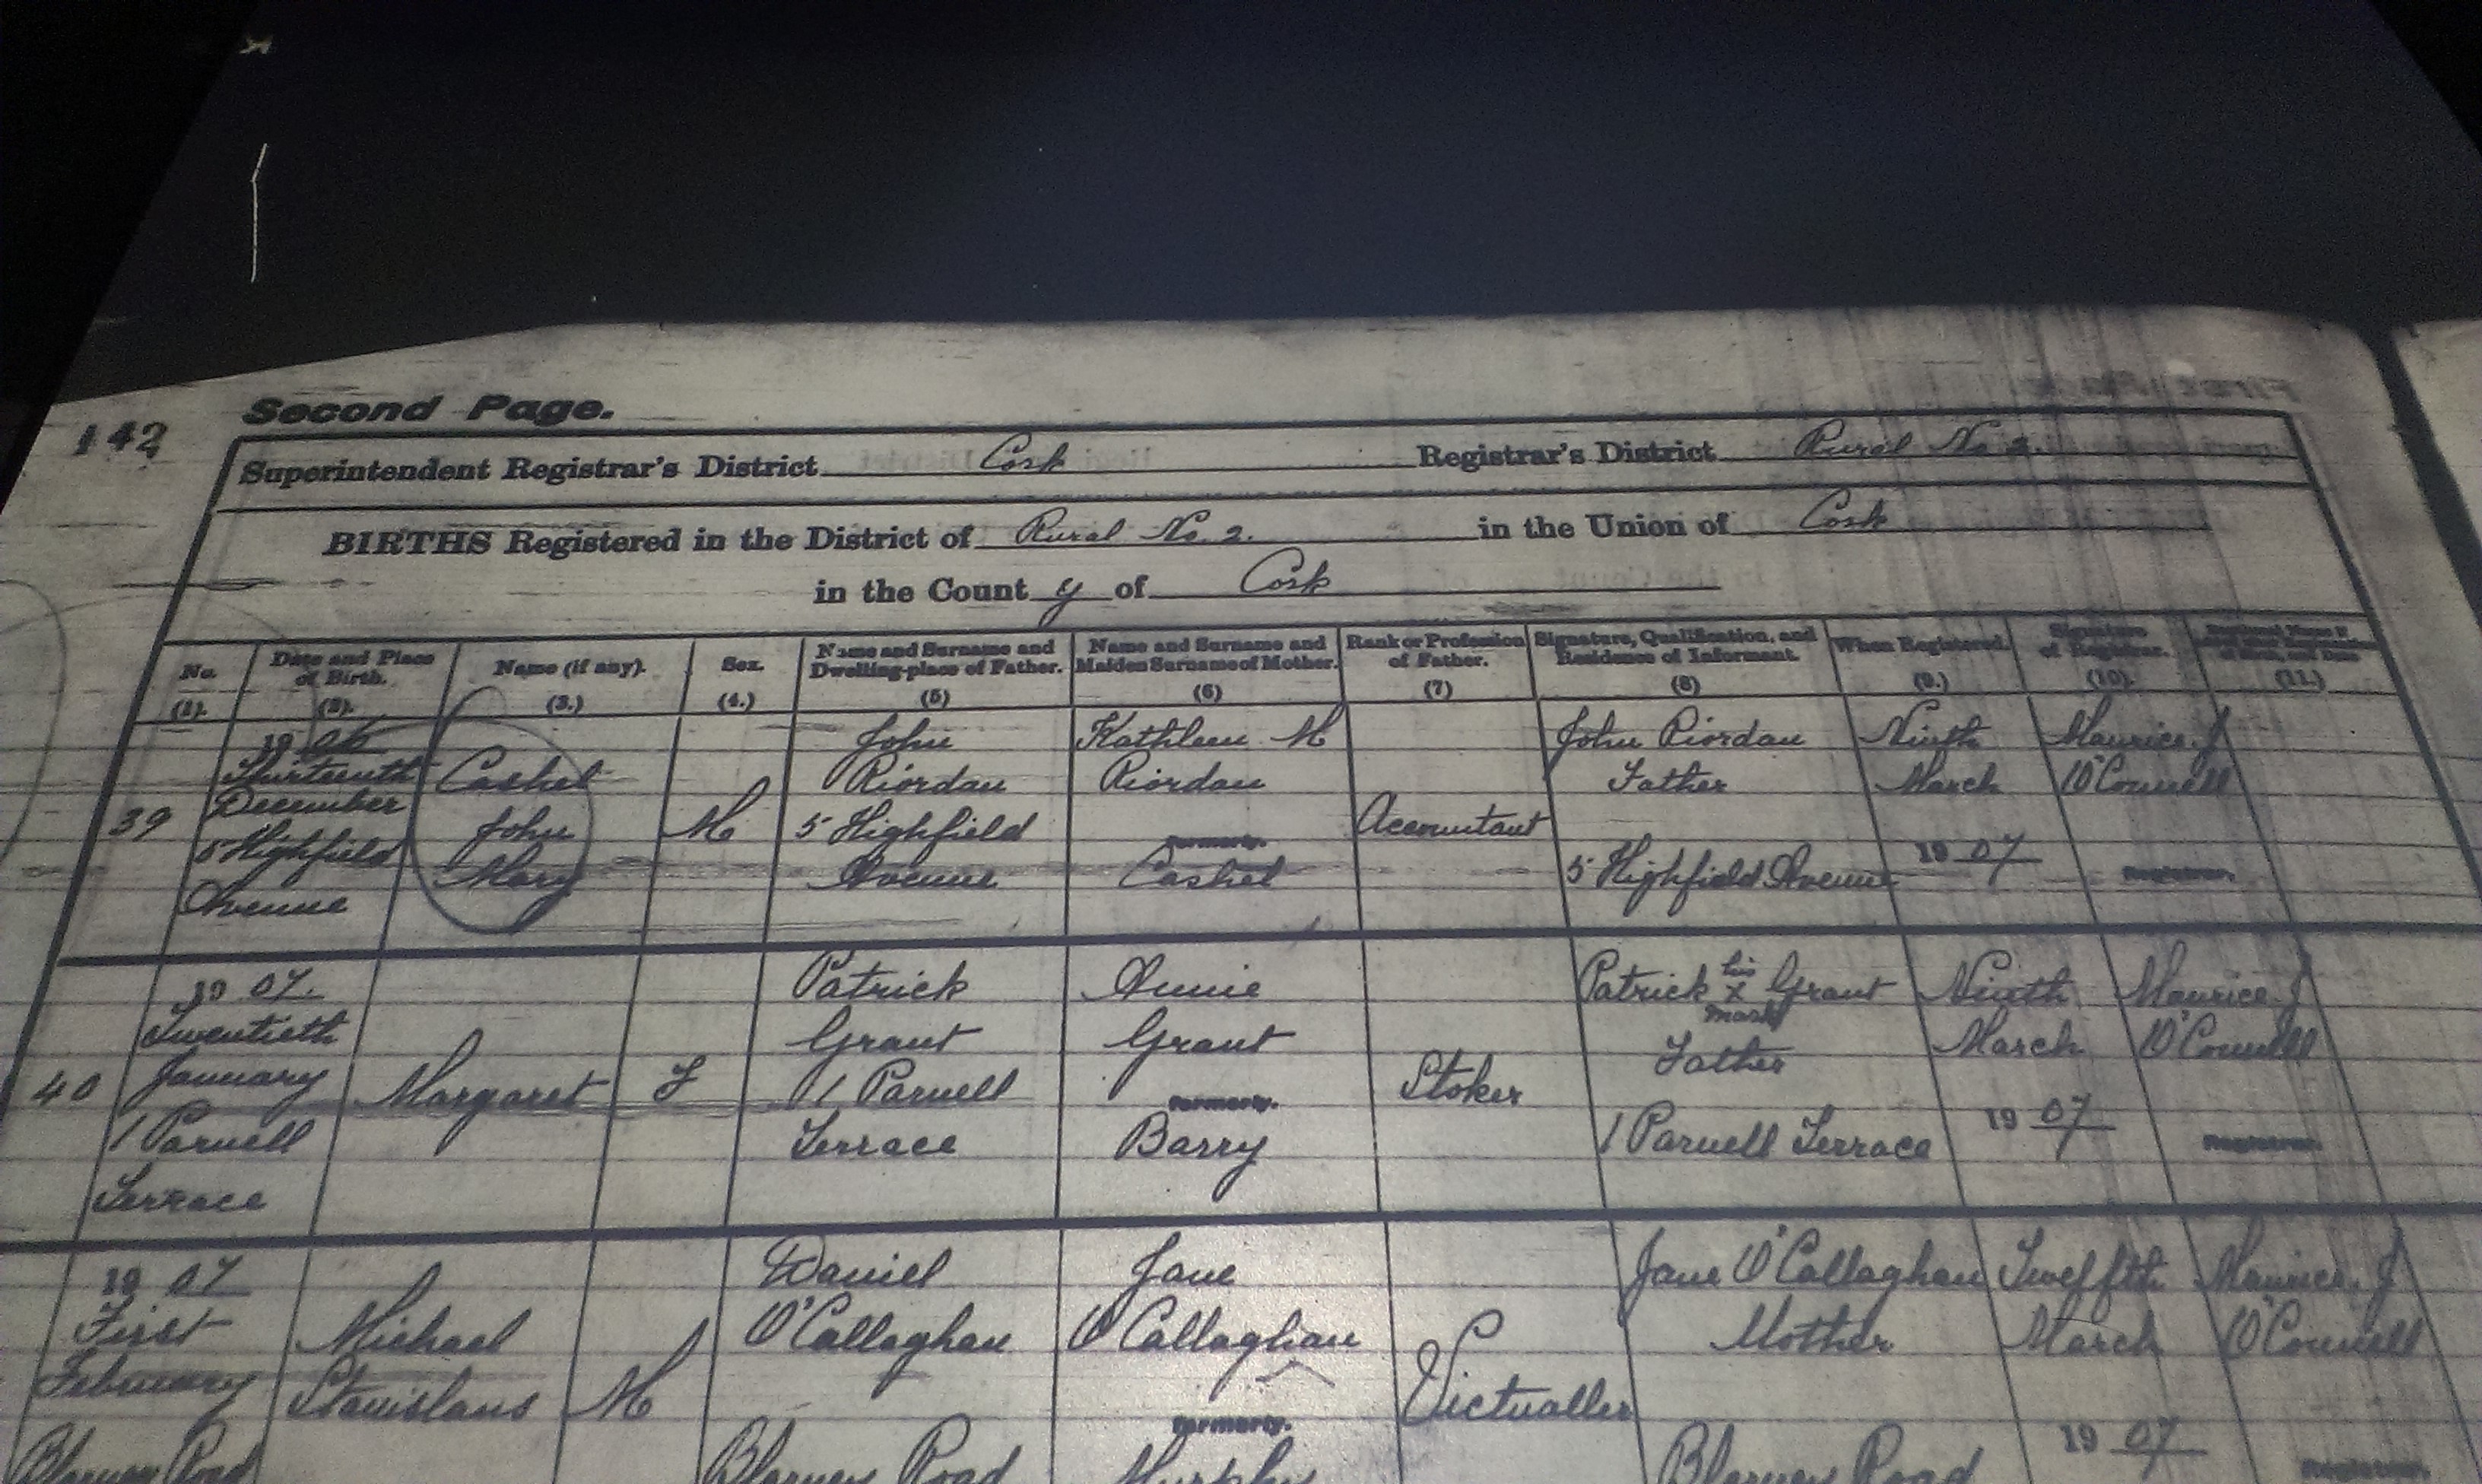 142
Second Page.
Superintendent Registrar's District Cork Registrar's District Rural No 2.
BIRTHS Registered in the District of Rural No. 2. in the Union of Cork
in the Count y of Cork
No. (1).
Date and Place of Birth. (2).
Name (if any). (3.)
Sex. (4.)
Name and Surname and Dwelling-place of Father. (5)
Name and Surname and Maiden Surname of Mother. (6)
Rank or Profession of Father. (7)
Signature, Qualification, and Residence of Informant. (8)
When Registered. (9.)
Signature of Registrar. (10).
(11.)
39
1906
Thirteenth
December
5 Highfield
Avenue
Cashel
John
Mary
M
John
Riordan
5 Highfield
Avenue
Kathleen M
Riordan
formerly.
Cashel
Accountant
John Riordan
Father
5 Highfield Avenue
Ninth
March
1907
Maurice J
O'Connell
Registrar.
40
1907.
Twentieth
January
1 Parnell
Terrace
Margaret
F
Patrick
Grant
1 Parnell
Terrace
Annie
Grant
formerly.
Barry
Stoker
Patrick his x mark Grant
Father
1 Parnell Terrace
Ninth
March
1907
Maurice J
O'Connell
Registrar.
1907
First
February
Blarney Road
Michael
Stanislaus
M
Daniel
O'Callaghan
Blarney Road
Jane
O'Callaghan
formerly.
Murphy
Victualler
Jane O'Callaghan
Mother
Blarney Road
Twelfth
March
1907
Maurice. J
O'Connell
Registrar.